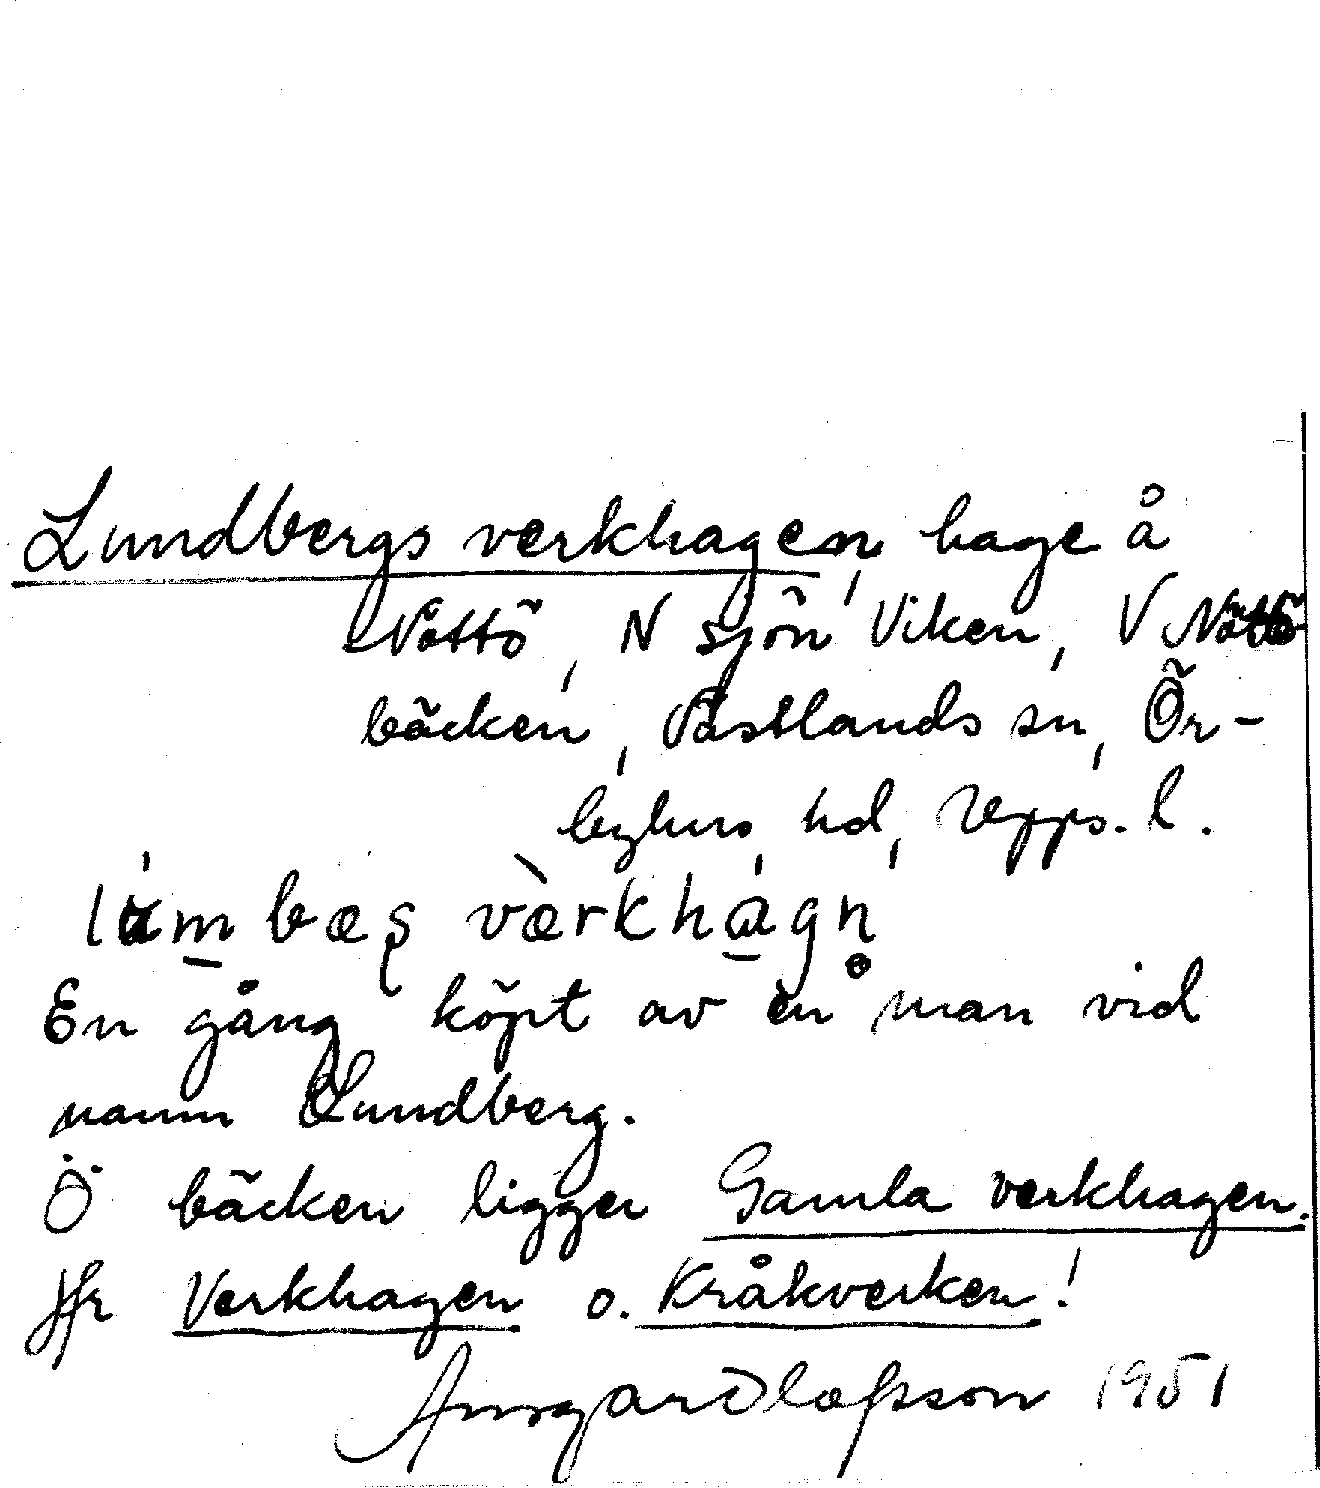 Lundbergs verkhagen, hage å
Nöttö, N sjön Viken, V Nöttö
bäcken, Västlands sn, Ör-
byhus hd, Upps. l.
lúmbæʂ værkhagn̥
En gång köpt av en man vid
namn Lundberg.
Ö bäcken ligger Gamla verkhagen.
Jfr Verkhagen o. Kråkverken!
Olafsson 1951